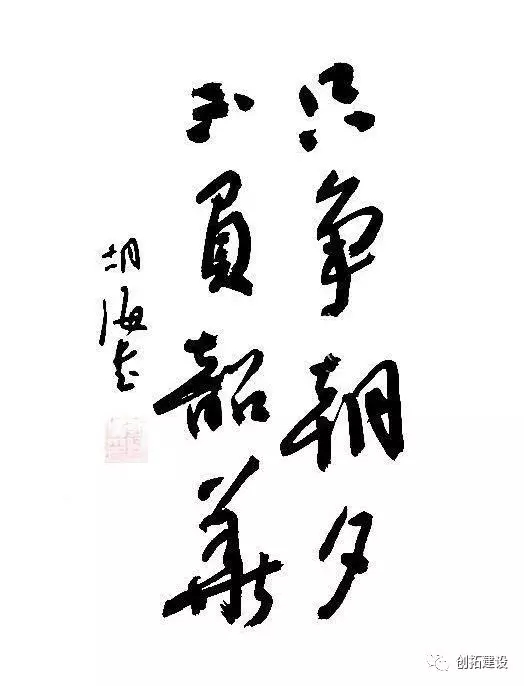 只争朝夕
不負韶華
胡海
创拓建设